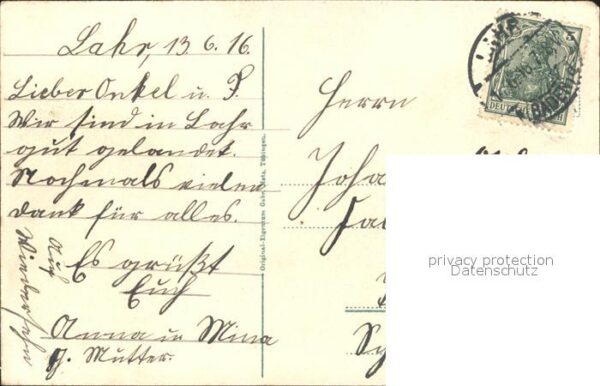 Lahr, 13.6.16.
Lieber Onkel u. T.
Wir sind in Lahr
gut gelandet.
Nochmals vielen
Dank für alles.
Es grüßt
Euch
Anna u Mina
g. Mutter.
Auf
Wiedersehn
Original-Eigentum Gebr. Metz, Tübingen.
Herrn
Joha
LAHR
(BADEN)
DEUTSCHES
privacy protection
Datenschutz